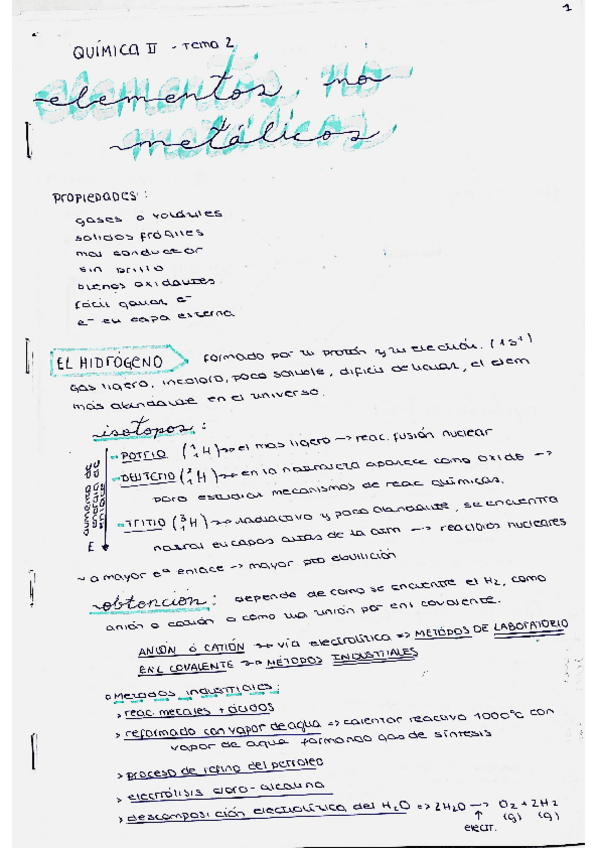 1
QUÍMICA II - Tema 2
elementos no
metálicos
Propiedades:
gases o volátiles
solidos frágiles
mal conductor
sin brillo
buenos oxidantes
fácil ganar e⁻
e⁻ en capa externa
EL HIDRÓGENO formado por un protón y un electrón. (1s¹)
gas ligero, incoloro, poco soluble, difícil de licuar, el elem
más abundante en el universo.
isótopos:
PROTIO (¹₁H) → el más ligero → reac. fusión nuclear
DEUTERIO (²₁H) → en la naturaleza aparece como óxido →
para estudiar mecanismos de reac químicas.
TRITIO (³₁H) → radiactivo y poco abundante, se encuentra
natural en capas altas de la atm → reactores nucleares
aumento de energía de enlace
E
~ a mayor eª enlace → mayor pto ebullición
obtención: depende de como se encuentre el H₂, como
anión o catión o como una unión por enl covalente.
ANIÓN O CATIÓN → vía electrolítica => MÉTODOS DE LABORATORIO
ENL COVALENTE → MÉTODOS INDUSTRIALES
Métodos industriales:
> reac. metales + ácidos
> reformado con vapor de agua => calentar reactivo 1000ºC con
vapor de agua formando gas de síntesis
> proceso de refino del petroleo
> electrólisis cloro-alcalina
> descomposición electrolítica del H₂O => 2H₂O → O₂ + 2H₂
↑ (g) (g)
electr.